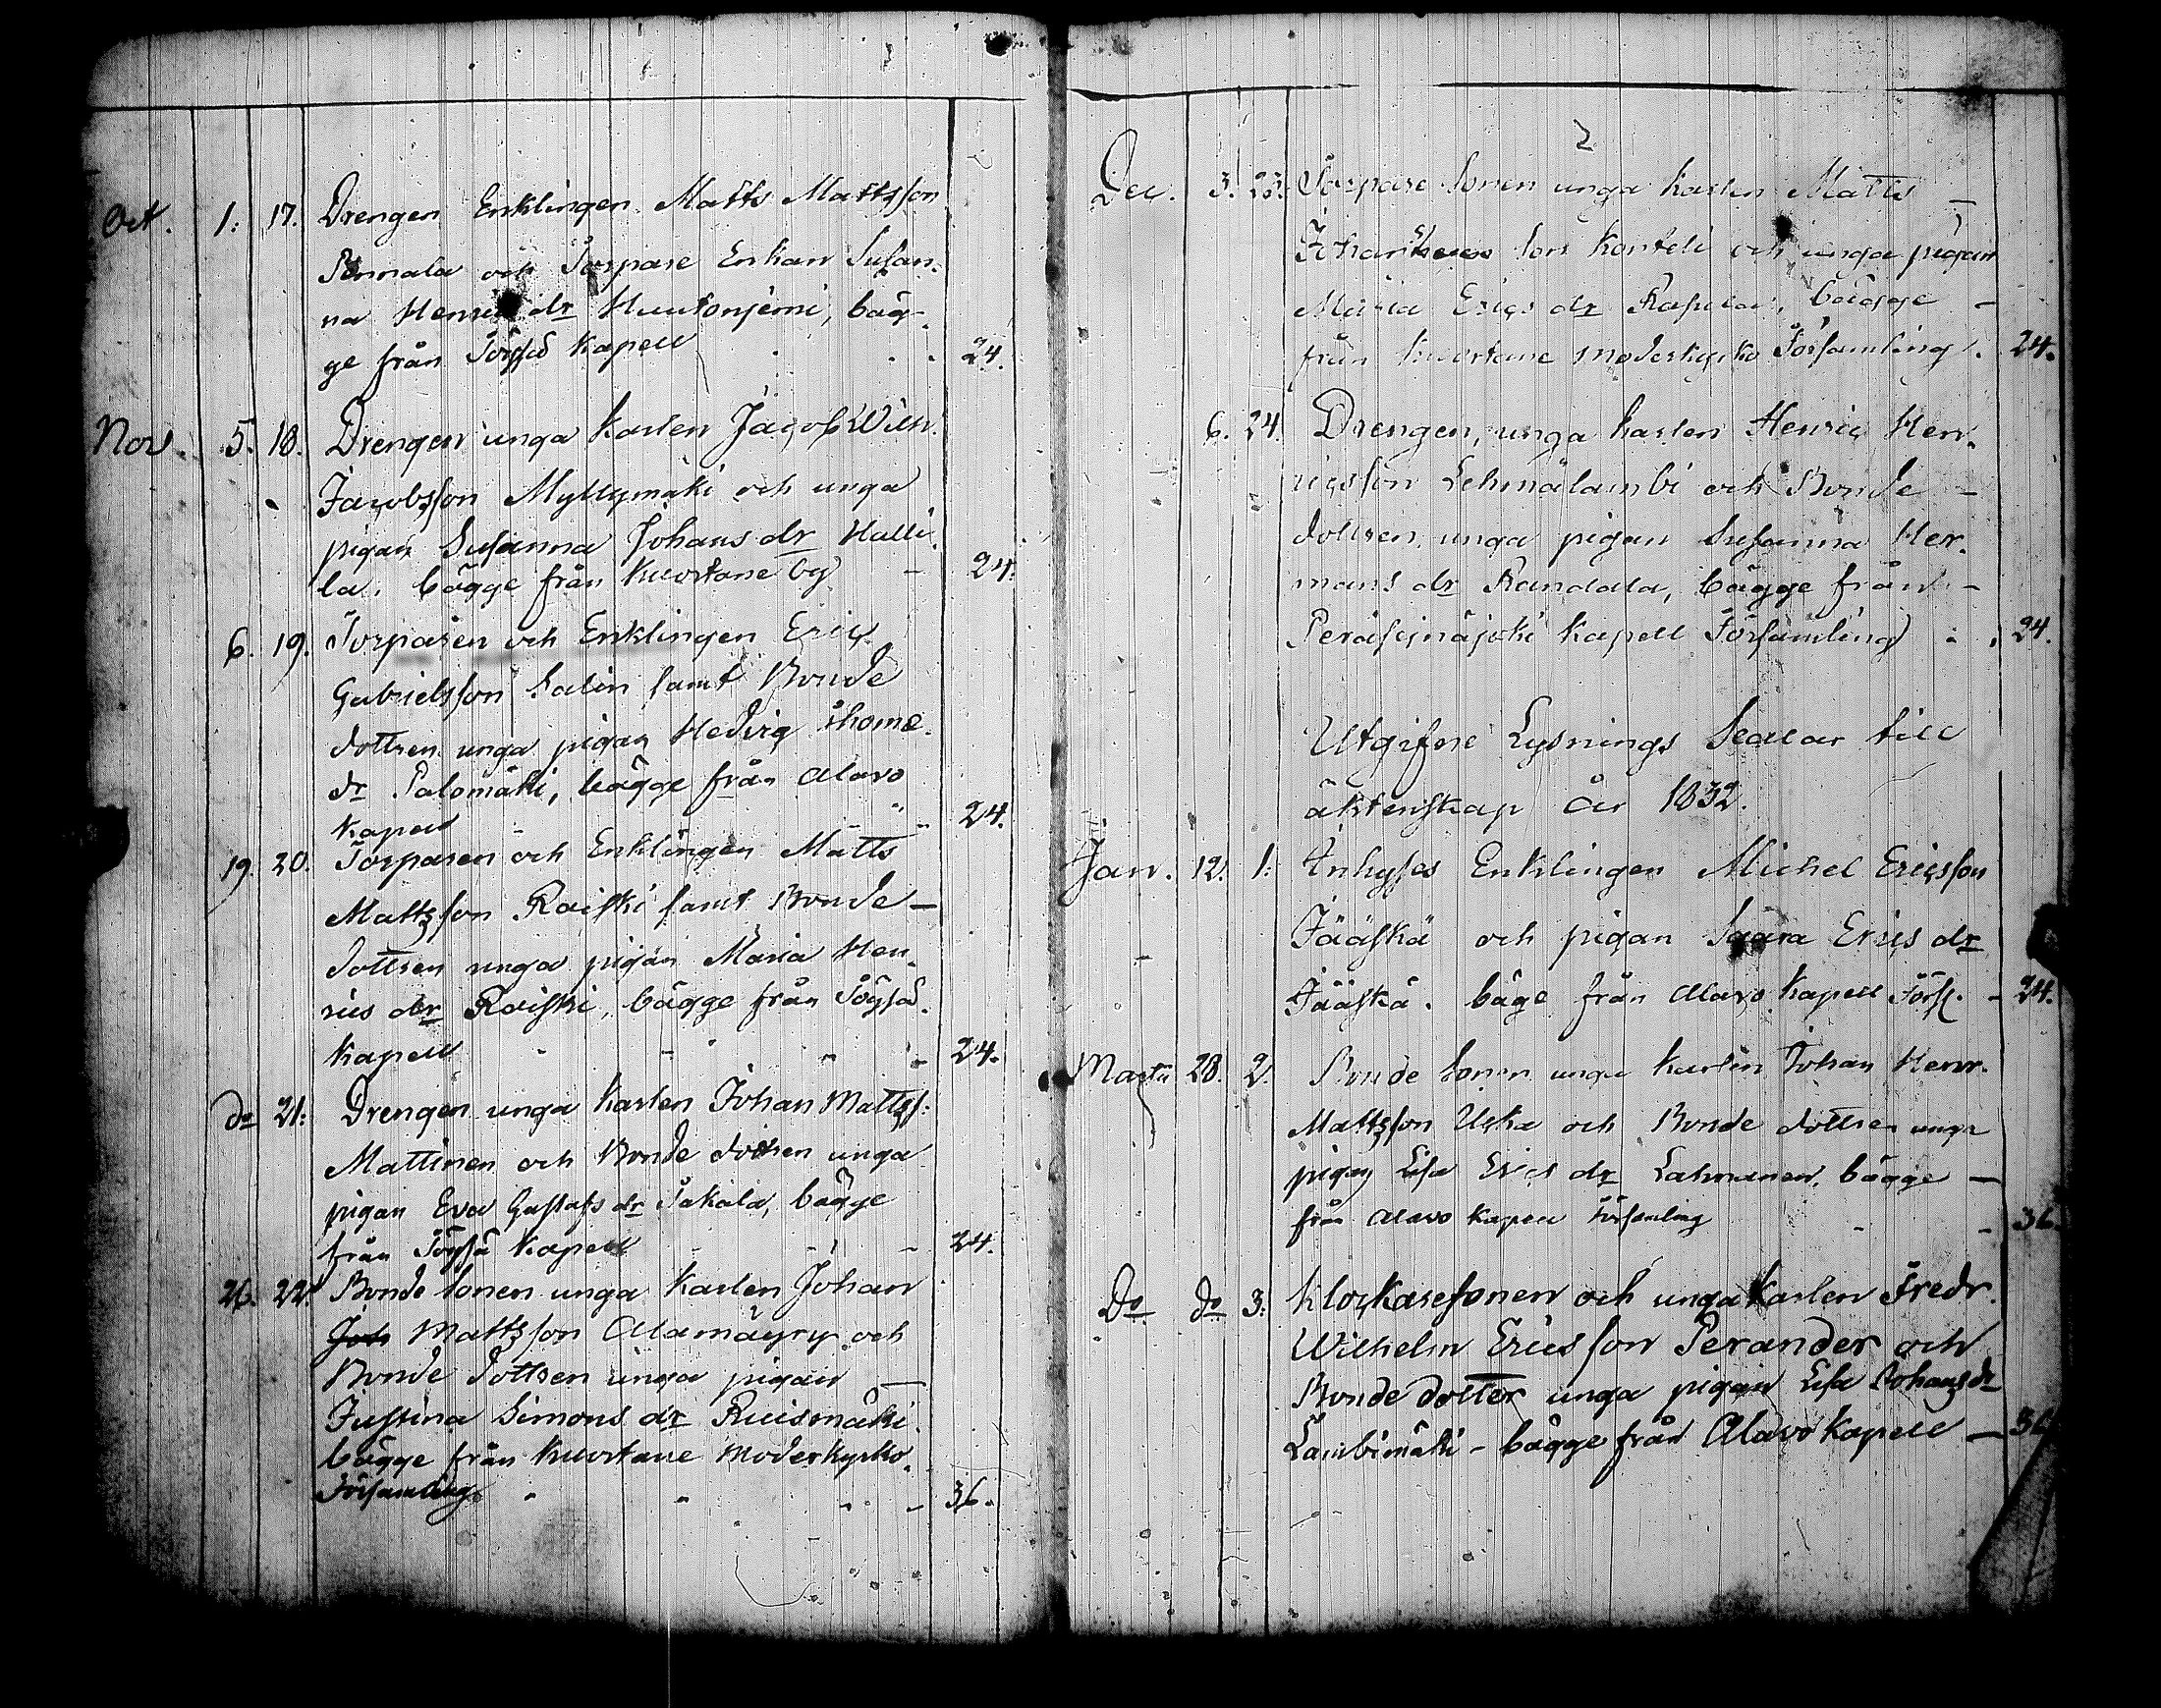 Oct. 1. 17. Drengen Enklingen Matts Mattsson
Pennala och Torpare Enkan Susan-
na Henrics dr Huutoniemi, bäg-
ge från Töysä Kapell 24.
Nov. 5. 18. Drengen unga Karlen Jacob Wilh.
Jacobsson Myllymäki och unga
pigan Susanna Johans dr Halli-
la, bägge från Kuortane by 24.
6. 19. Torparen och Enklingen Eric
Gabrielsson Salin samt Bonde
dottren unga pigan Hedvig Thome
dr Palomäki, bägge från Alavo
Kapell 24.
19. 20. Torparen och Enklingen Matts
Mattsson Raiski samt Bonde
dottren unga pigan Maria Hen-
rics dr Raiski, bägge från Töysä
Kapell 24.
do 21. Drengen unga Karlen Johan Mattss:
Mattinen och Bonde dottren unga
pigan Eva Gustafs dr Sakala, bägge
från Töysä Kapell 24.
26. 22. Bonde Sonen unga Karlen Johan
Joh Mattsson Alamäyry och
Bonde dottren unga pigan
Justina Simons dr Ruismäki
bägge från Kuortane Moderkyrko
Församling 36.
2
Dec. 3. 23. Torpare Sonen unga karlen Matts
Johan Sons Konteli och unga pigan
Maria Erics dr bägge
från Kuortane moderkyrko Församling. 24.
6. 24. Drengen, unga karlen Henric Hen-
ricsson Lehmälambi och Bonde
dottren unga pigan Susanna Her-
mans dr Randala, bägge från
Peräseinäjoki Kapell Församling 24.
Utgifne Lysnings Sedlar till
äktenskap år 1832.
Jan. 12. 1. Inhyses Enklingen Michel Ericsson
Jääskä och pigan Saara Erics dr
Jääskä. bäge från Alavo Kapell Förs. 24.
Martii 28. 2. Bonde Sonen unga Karlen Johan Henr.
Mattsson Uska och Bonde dottren unga
pigan Lisa Erics dr Lahnanen, bägge
från Alavo Kapell Församling 36.
Do do 3. Klockaresonen och unga Karlen Fredr.
Wilhelm Ericsson Perander och
Bonde dotter unga pigan Lisa Johans dr
Lambimäki - bägge från Alavo Kapell 36